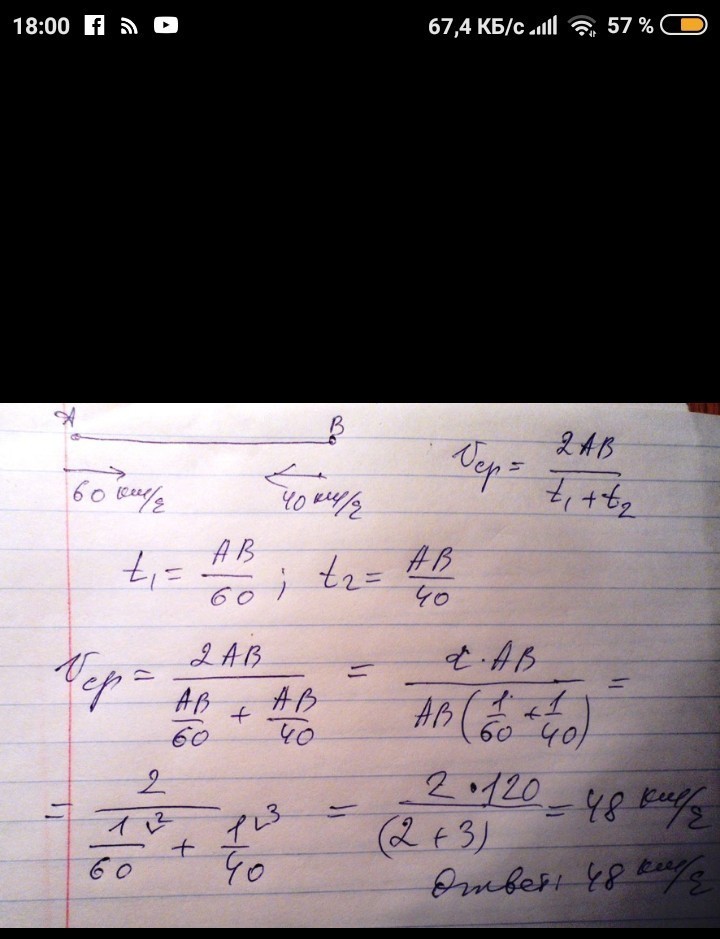 18:00 67,4 КБ/с 57 %
A B
60 км/ч 40 км/ч
Vср = 2AB / (t₁ + t₂)
t₁ = AB/60 ; t₂ = AB/40
Vср = 2AB / (AB/60 + AB/40) = 2·AB / (AB(1/60 + 1/40)) =
= 2 / (1²/60 + 1³/40) = 2·120 / (2+3) = 48 км/ч
Ответ: 48 км/ч